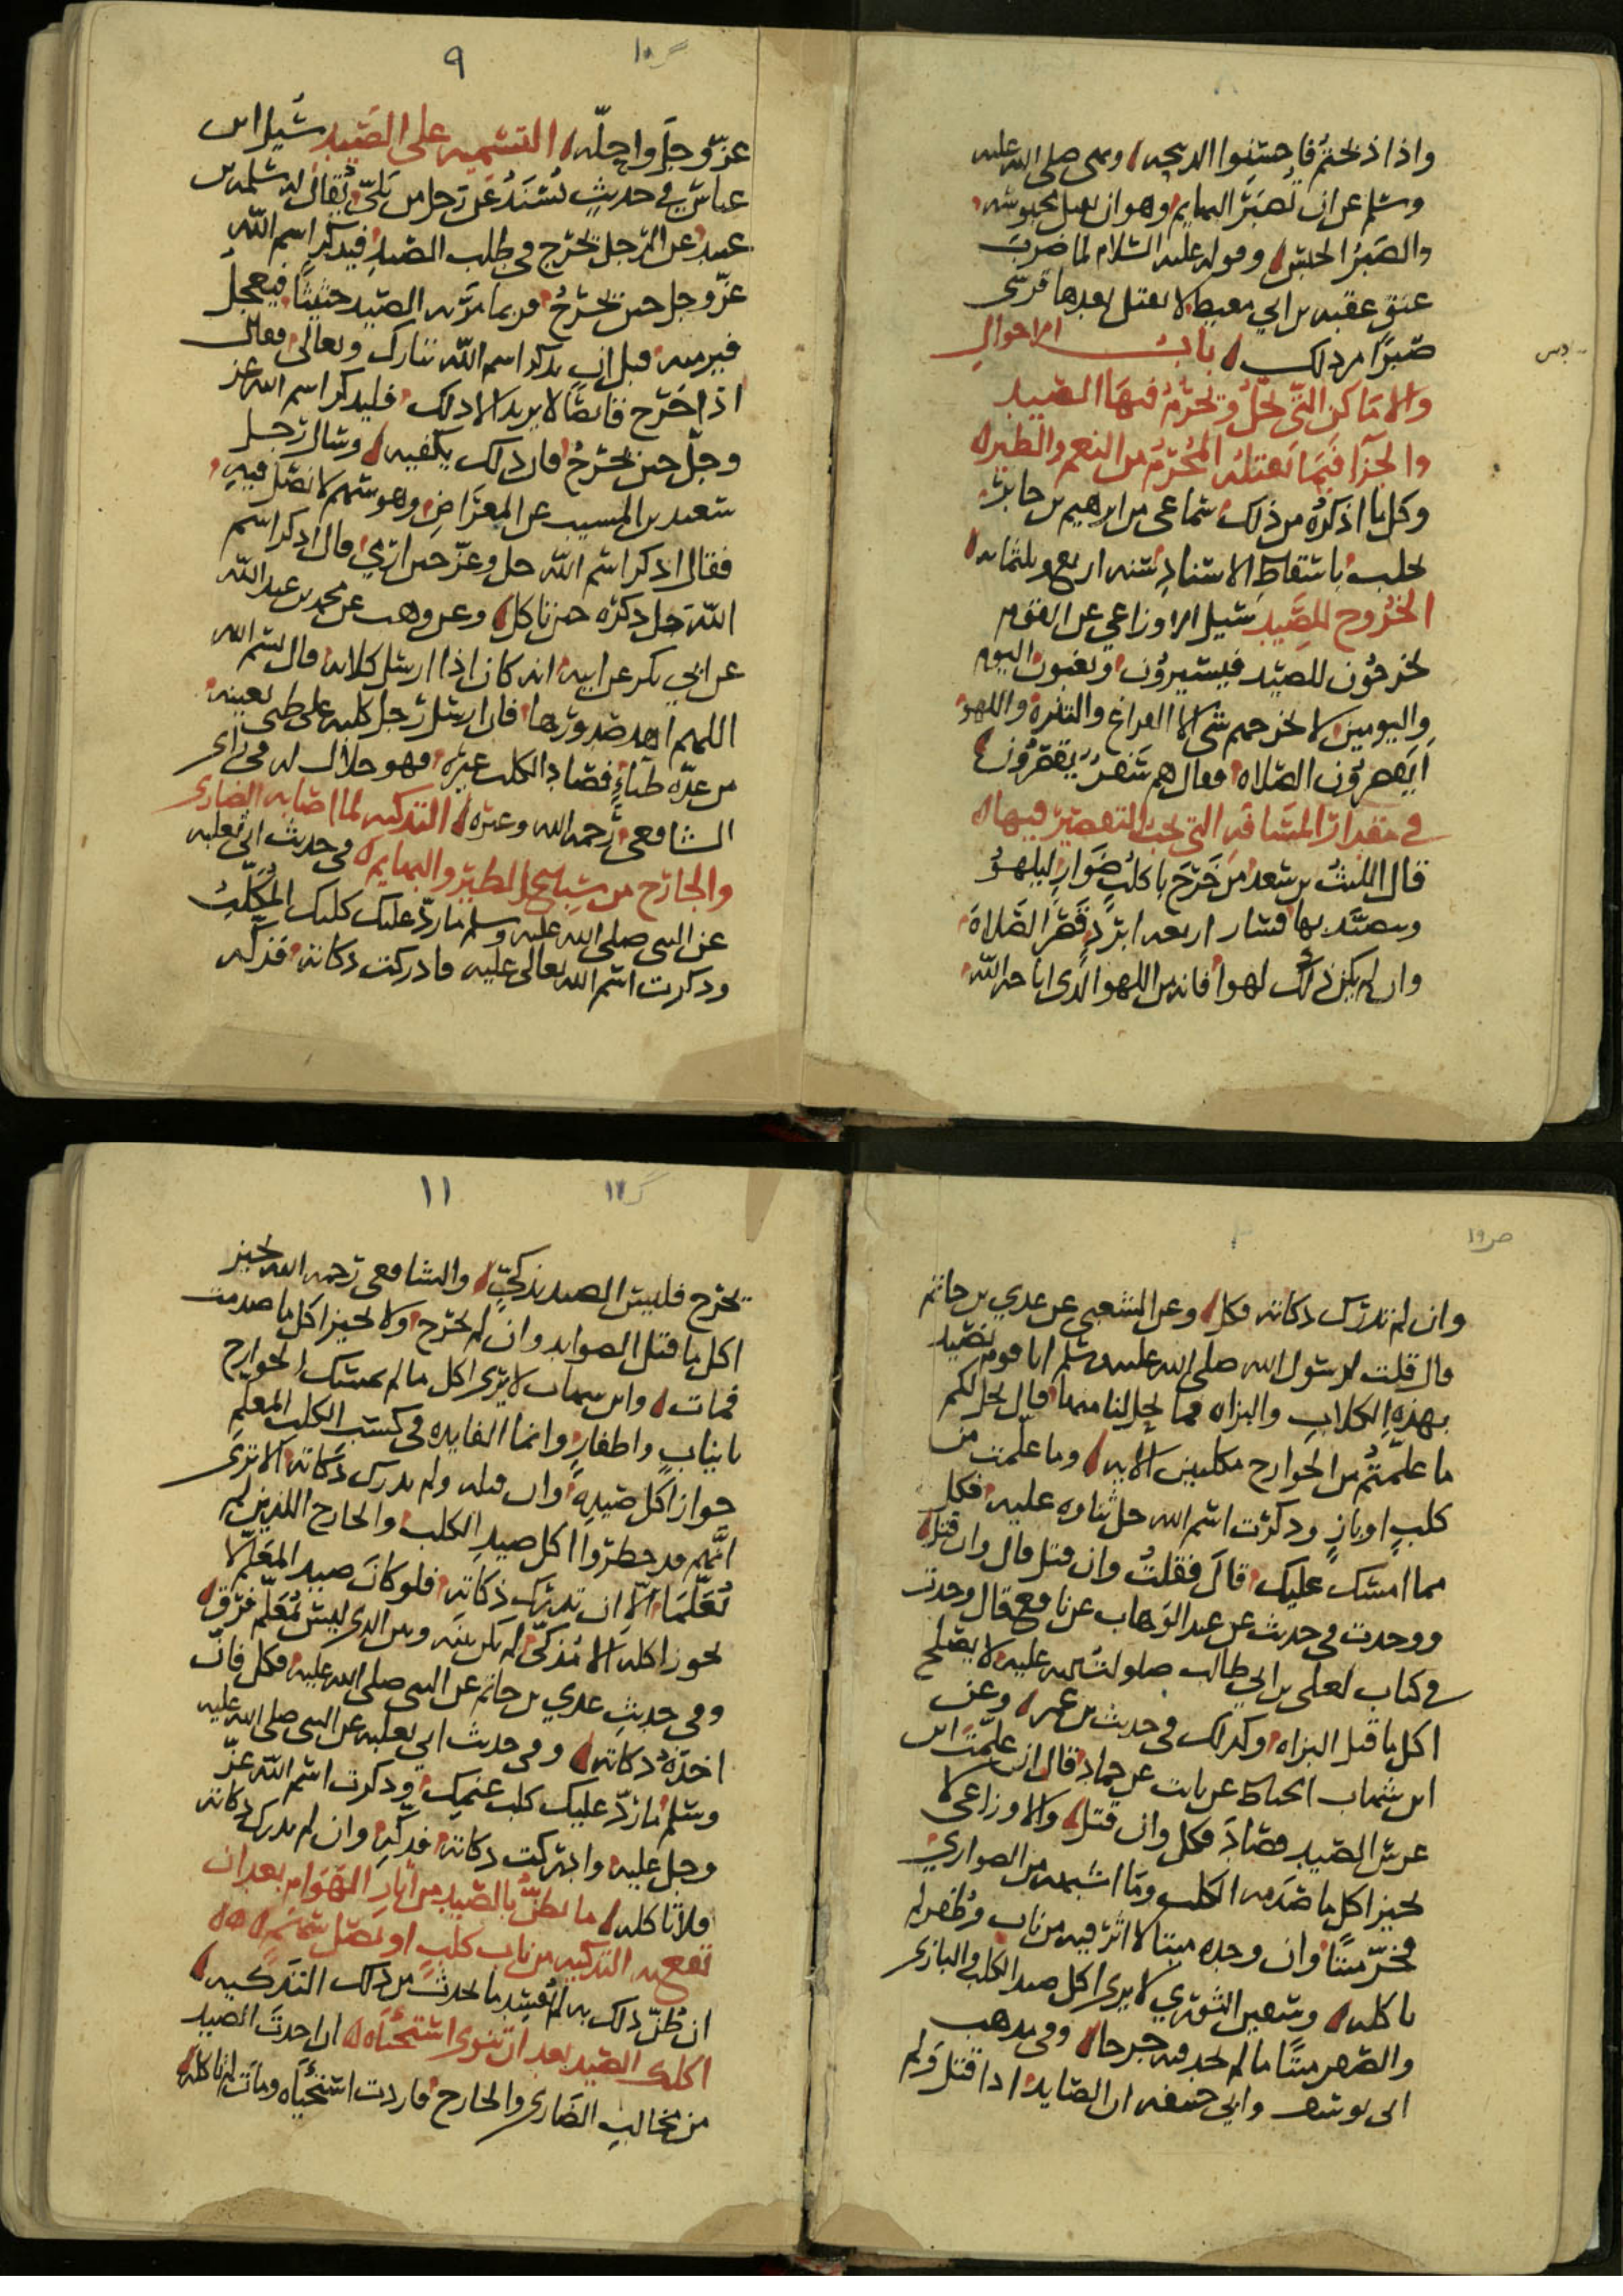 واذا ذبحتم فاحسنوا الذبحه ونهى صلى الله عليه
وسلم عن ان تصبر البهايم وهو ان تقتل محبوسه
والصبر الحبس وقوله عليه السلام لما ضرب
عنق عقبه بن ابي معيط لا يقتل بعدها قرشى
صبرا من ذلك باب الاحوال
والاماكن التى يحل ويحرم فيها الصيد
والجزا فيما يقتله المحرم من النعم والطير
وكل ما اذكره من ذلك سماعى من ابرهيم بن جابر
بحلب باسقاط الاسناد سنه اربع وثلثمايه
الخروج للصيد سيل الاوزاعي عن القوم
يخرجون للصيد فيسيرون ويغيبون اليوم
واليومين لا يخرجهم شى الا الفراغ والتنزه واللهو
ايقصرون الصلاه فقال هم سفر يقصرون
في مقدار المسافه التى يجب التقصير فيها
قال الليث بن سعد من خرج باكلب ضوار ليلهو
ويصيد بها فسار اربعه ابرد قصر الصلاه
وان لم يكن ذلك لهوا فانه من اللهو الذى اباحه الله
٩
١٠
عز وجل واحله التسميه على الصيد سيل ابن
عباس في حديث يسند عن رجل من بلى يقال له سلمه بن
عبيد عن الرجل يخرج في طلب الصيد فيذكر اسم الله
عز وجل حين يخرج فربما مر به الصيد حثيثا فيعجل
فيرميه قبل ان يذكر اسم الله تبارك وتعالى فقال
اذا خرج قانصا لا يريد الا ذلك فليذكر اسم الله عز
وجل حين يخرج فان ذلك يكفيه وسال رجل
سعيد بن المسيب عن المعراض وهو سهم لا نصل فيه
فقال اذكر اسم الله جل وعز حين ارمي قال اذكر اسم
الله جل ذكره حين تاكل وعن وهب عن محمد بن عبد الله
عن ابي بكر عن ابيه انه كان اذا ارسل كلابه قال بسم الله
اللهم اهد صدورها فان ارسل رجل كلبه على ظبي بعينه
من عده ظباء فصاد الكلب غيره فهو حلال له في راي
الشافعى رحمه الله وغيره التذكيه لما اصابه الضارى
والجارح من سباع الطير والبهايم في حديث ابي ثعلبه
عن النبى صلى الله عليه وسلم ما رد عليك كلبك المكلب
وذكرت اسم الله تعالى عليه فادركت ذكاته فذكه
وان لم تدرك ذكاته فكل وعن الشعبى عن عدي بن حاتم
قال قلت لرسول الله صلى الله عليه وسلم انا قوم نصيد
بهذه الكلاب والبزاه فما يحل لنا منها قال يحل لكم
ما علمتم من الجوارح مكلبين الايه وما علمت من
كلب او باز وذكرت اسم الله جل ثناوه عليه فكل
مما امسك عليك قال فقلت وان قتل قال وان قتل
ووجدت في حديث عن عبد الوهاب عن نافع قال وجدت
في كتاب لعلى بن ابي طالب صلوات الله عليه لا يصلح
اكل ما قتل البزاه وكذلك في حديث بن عمر وعن
ابن شهاب الحناط عن ثابت عن حماد قال ان علمت ابن
عرس الصيد فصاد فكل وان قتل والاوزاعى لا
يجيز اكل ما صدمه الكلب وما اشبهه من الصوارى
فخر ميتا وان وجده ميتا لا اثر فيه من ناب وظفر لم
ياكله وسفين الثورى لا يرى اكل صيد الكلب والبازى
والصقر ميتا ما لم يجد فيه جرحا وفي مذهب
ابى يوسف وابي حنيفه ان الصايد اذا قتل ولم
١١
يخرج فليس الصيد بذكى والشافعى رحمه الله يجيز
اكل ما قتل الصوايد وان لم يجرح ولا يجيز اكل ما صدمت
فمات وابن سهاب لا يرى اكل ما لم يمسك الجوارح
بانياب واظفار وانما الفايده في كسب الكلب المعلم
جواز اكل صيده وان قتله ولم يدرك ذكاته الا ترى
انهم قد حظروا اكل صيد الكلب والجارح اللذين لم
يعلما الا ان تدرك ذكاته فلو كان صيد المعلم لا
يجوز اكله الا مذكى لم يكن بينه وبين الذى ليس بمعلم فرق
وفي حديث عدي بن حاتم عن النبى صلى الله عليه فكل فان
اخذه ذكاته وفي حديث ابي ثعلبه عن النبى صلى الله عليه
وسلم ما رد عليك كلب غنمك وذكرت اسم الله عز
وجل عليه وادركت ذكاته فذكه وان لم تدرك ذكاته
فلا تاكله ما يظن بالصيد من اثار الهوام بعد ان
تقع به التذكيه من ناب كلب او نصل سهم
ان ظن ذلك به لم يفسد ما يحدث من ذلك التذكيه
اكلك الصيد بعد ان تنوى استحياه ان اخذت الصيد
من مخالب الضارى والجارح فاردت استحياه ومات لم تاكله